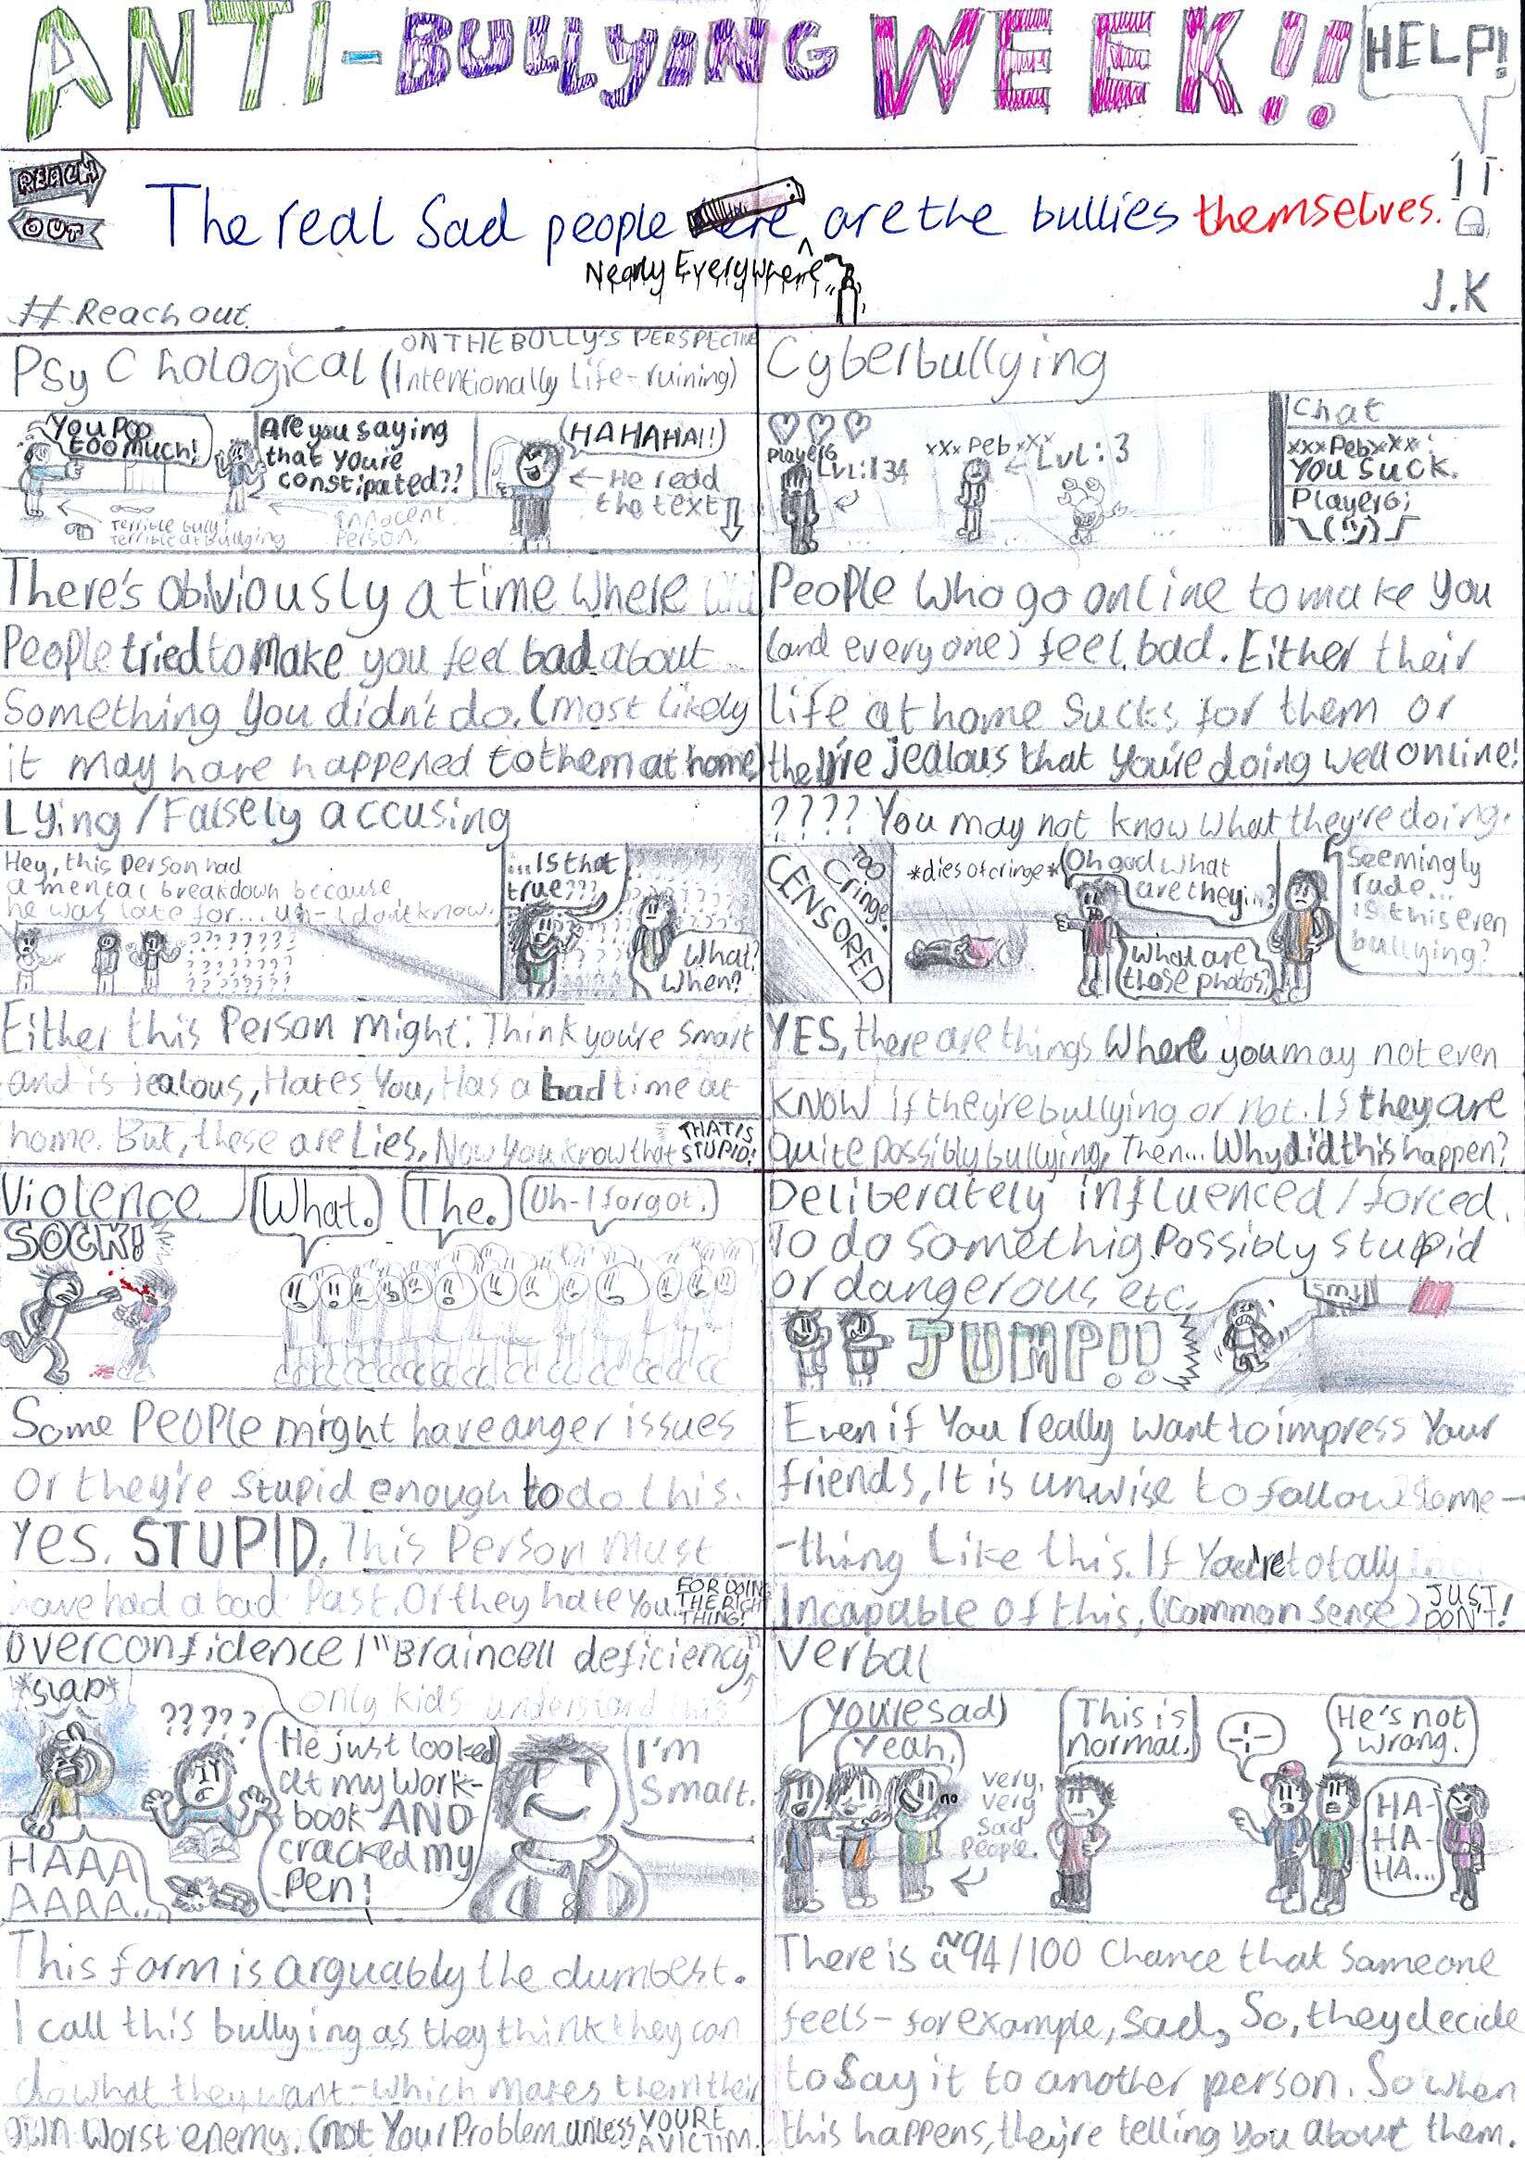 ANTI-BULLYING WEEK!!
HELP!
REACH
OUT
The real sad people here are the bullies themselves.
Nearly Everywhere
J.K
#Reachout
Psychological (Intentionally life-ruining)
ON THE BULLY'S PERSPECTIVE
You Poo
too much!
Are you saying
that you're
constipated??
(HAHAHA!!)
← He read
the text
terrible bully;
terrible at bullying
innocent
Person.
There's obiviously a time where
People tried to make you feel bad about
Something you didn't do. (most likely
it may have happened to them at home)
Cyberbullying
Player6
Lvl:134
xXx Peb xXx
← Lvl:3
Chat
xxxPebxxx:
You suck.
Player6:
¯\_(ツ)_/¯
People who go online to make you
(and everyone) feel bad. Either their
life at home sucks for them or
they're jealous that you're doing well online!
Lying/Falsely accusing
Hey, this person had
a mental breakdown because
he was late for... uh-I don't know.
...Is that
true???
What?
When?
Either this Person might: Think you're smart
and is jealous, Hates You, Has a bad time at
home. But, these are Lies, Now you know that THAT IS
STUPID!
???? You may not know what they're doing.
TOO
Cringe.
CENSORED
*dies of cringe*
Oh god what
are they...?
What are
those photos?
Seemingly
rude...
is this even
bullying?
YES, there are things where you may not even
KNOW if they're bullying or not. Is they are
Quite possibly bullying, Then... Why did this happen?
Violence
What.
The.
Uh-I forgot.
SOCK!
Some People might have anger issues
Or they're stupid enough to do this.
Yes. STUPID. This Person Must
have had a bad Past. Or they hate You. FOR DOING
THE RIGHT
THING!
Deliberately influenced/forced.
To do somethig Possibly stupid
or dangerous etc.
5m
JUMP!!
Even if You really want to impress Your
friends, It is unwise to follow some-
-thing Like this. If You're totally
Incapable of this, (Common sense) JUST
DON'T!
Overconfidence/"Braincell deficiency"
only kids understand this
*slap*
????
HAAA
AAAA...
He just looked
at my work-
book AND
cracked my
Pen!
I'm
Smart.
This form is arguably the dumbest.
I call this bullying as they think they can
do what they want-which makes them their
own worst enemy. (not Your Problem unless YOU'RE
A VICTIM.
Verbal
You're sad
Yeah.
no
very,
very
sad
people.
This is
normal.
-¦-
He's not
wrong.
HA-
HA-
HA...
There is a ~94/100 Chance that someone
feels-for example, sad, So, they decide
to say it to another person. So when
this happens, they're telling you about them.